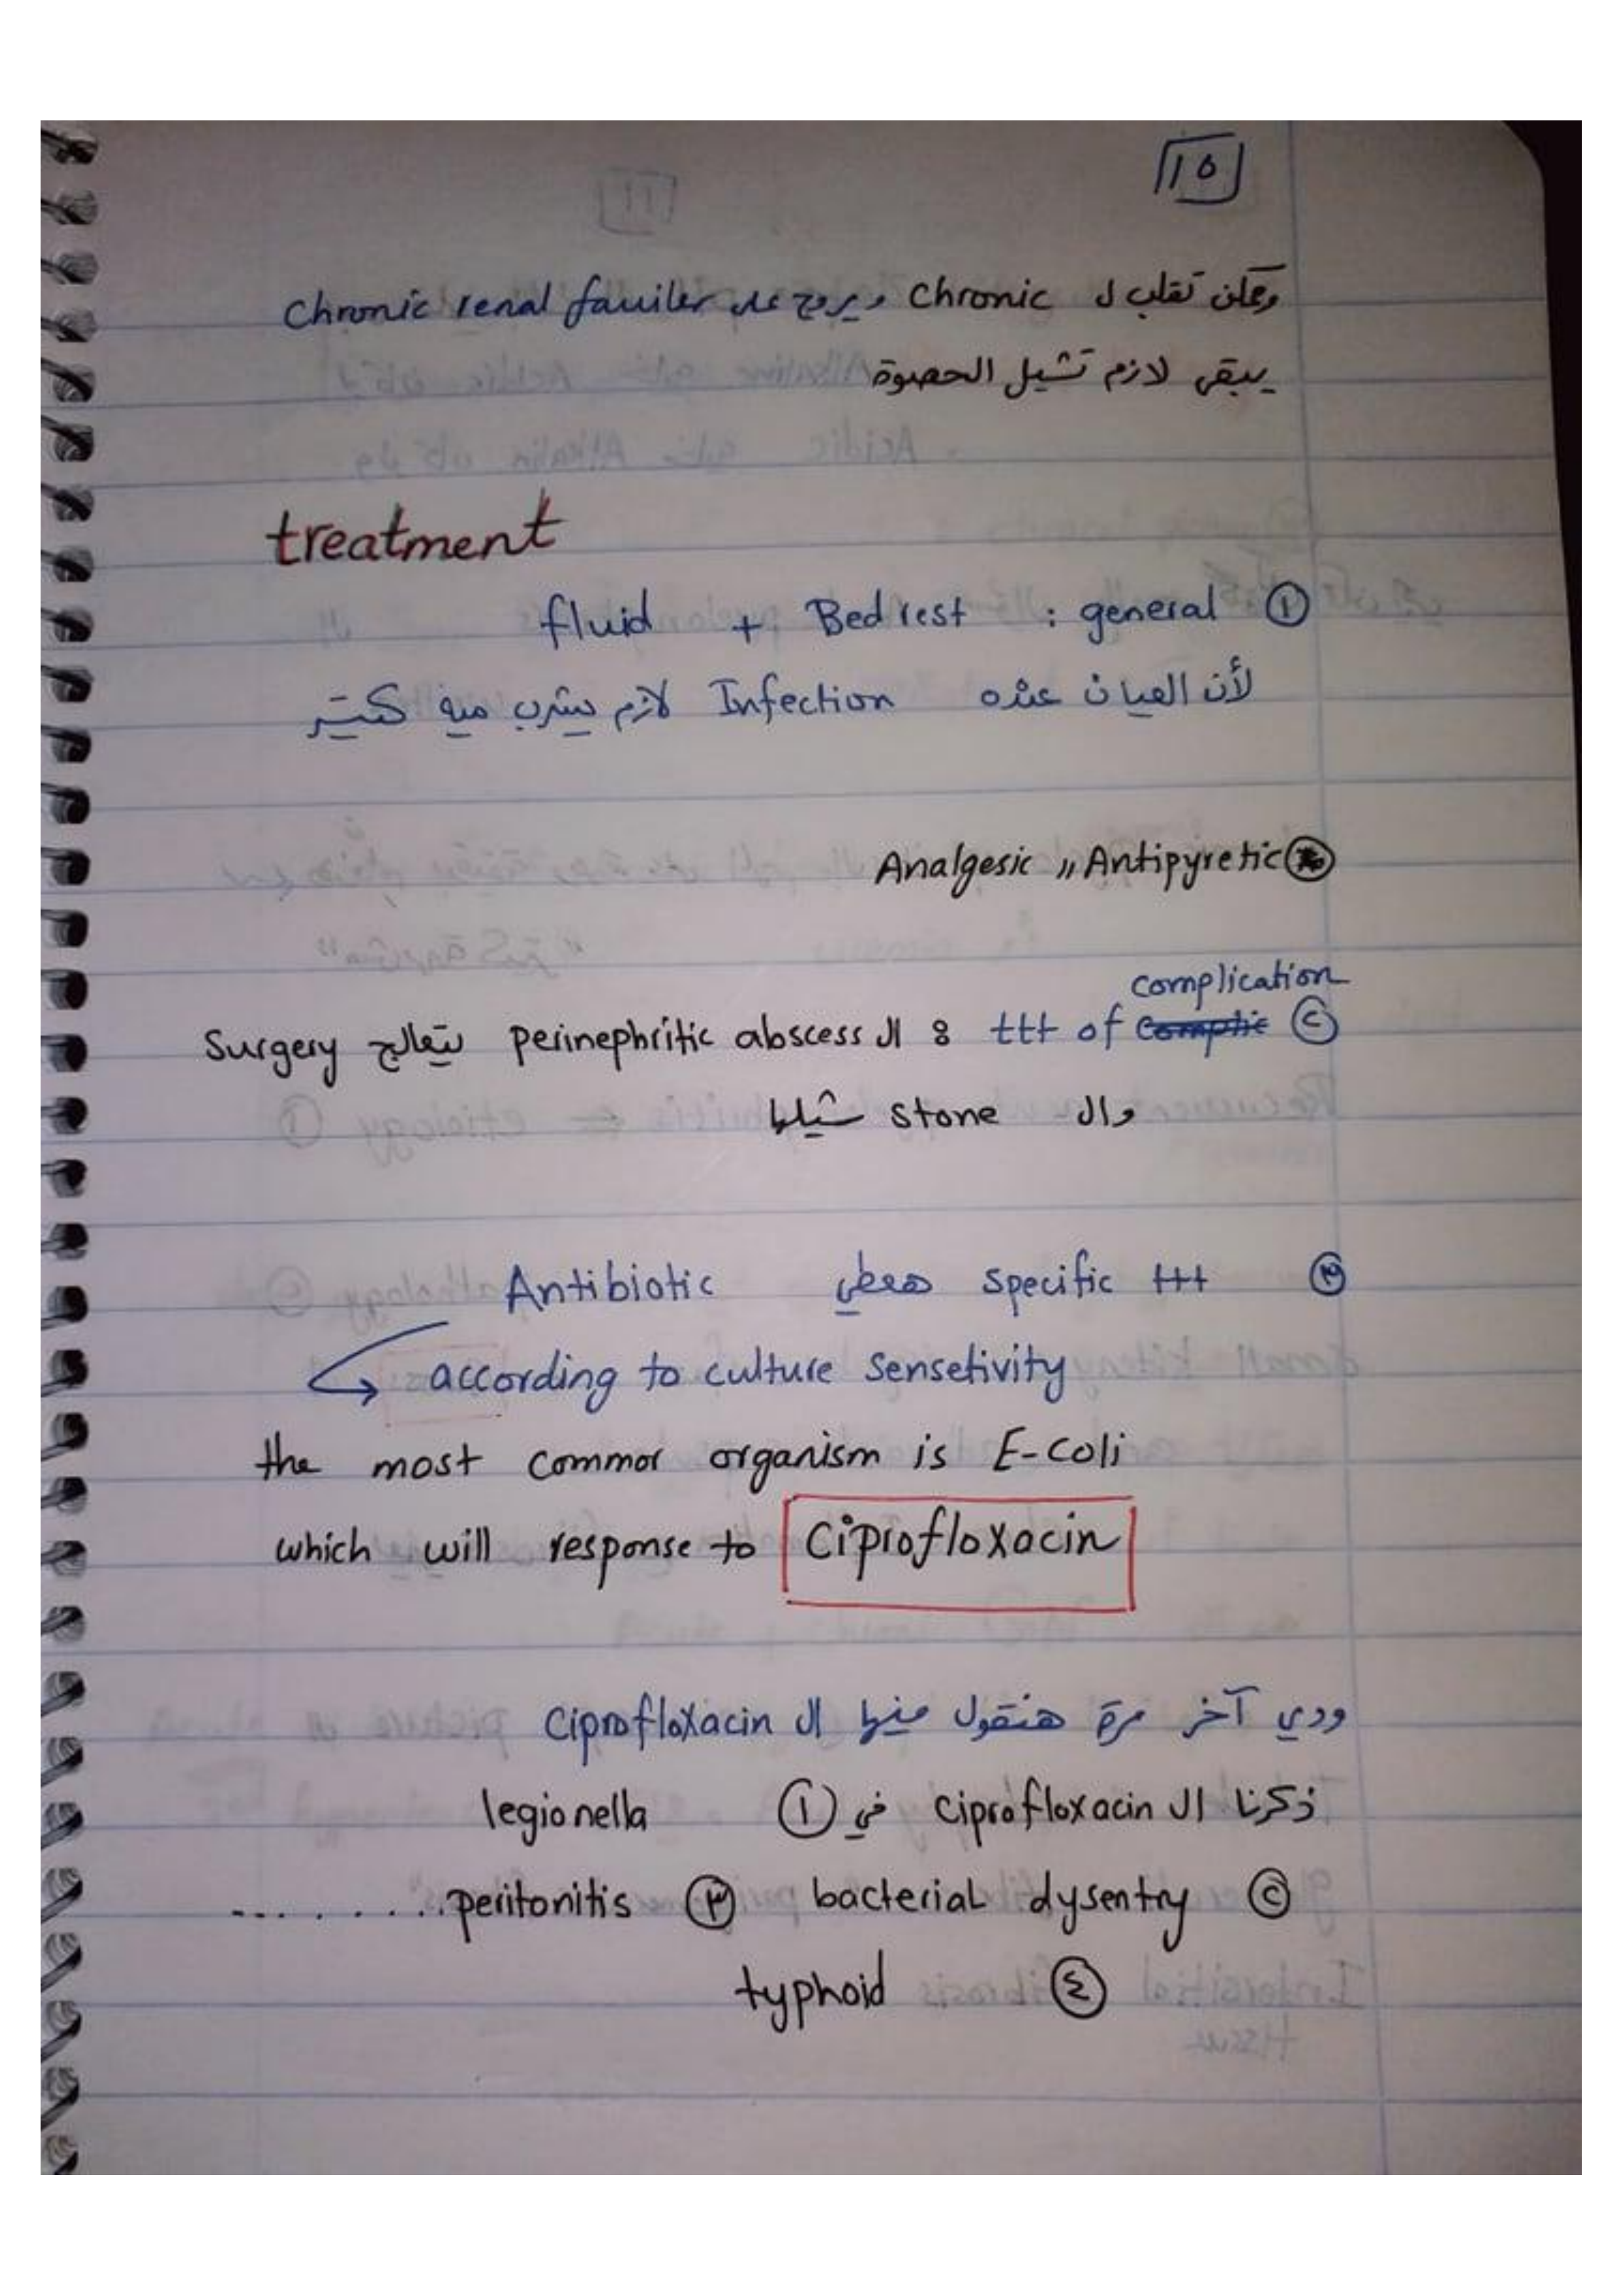 ١٥
وممكن تقلب ل chronic ويروح على chronic renal fauiler
يبقى لازم تشيل الحصوة
treatment
① general : Bed rest + fluid
لأن العيان عنده Infection لازم يشرب ميه كتير
Analgesic ,, Antipyretic
complication
② ttt of : ال perinephritic abscess بتعالج surgery
وال stone شيلها
③ specific ttt هعطي Antibiotic
according to culture sensetivity
the most common organism is E-coli
which will response to Ciprofloxacin
ودي آخر مرة هنقول فيها ال Ciprofloxacin
ذكرنا ال Ciprofloxacin في ① legionella
② bacterial dysentry ③ peritonitis ........
④ typhoid